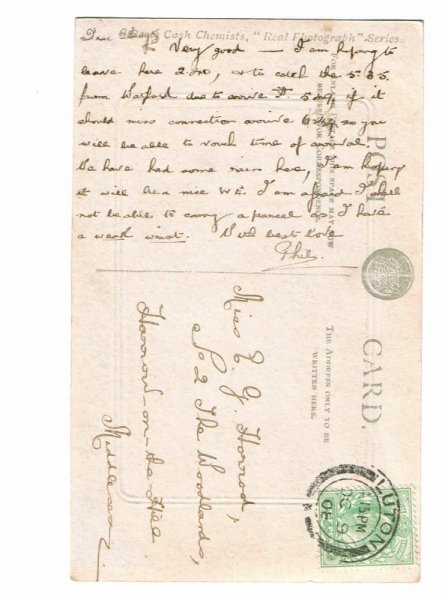 Boots Cash Chemists, "Real Photograph" Series.
Dear
Very good — I am hoping to
leave here 2.20, & to catch the 5.35
from Watford due to arrive 5.49, if it
should miss connection arrive 6.29 so you
will be able to vouch time of arrival.
We have had some rain here, I am hoping
it will be a nice W.E. I am afraid I shall
not be able to carry a parcel as I have
a weak wrist. With best love
Phil.
POST CARD.
THE ADDRESS ONLY TO BE
WRITTEN HERE.
Miss E. G. Horrod,
No 2 The Woodlands,
Harrow-on-the-Hill.
Middlesex.
LUTON
PM
9